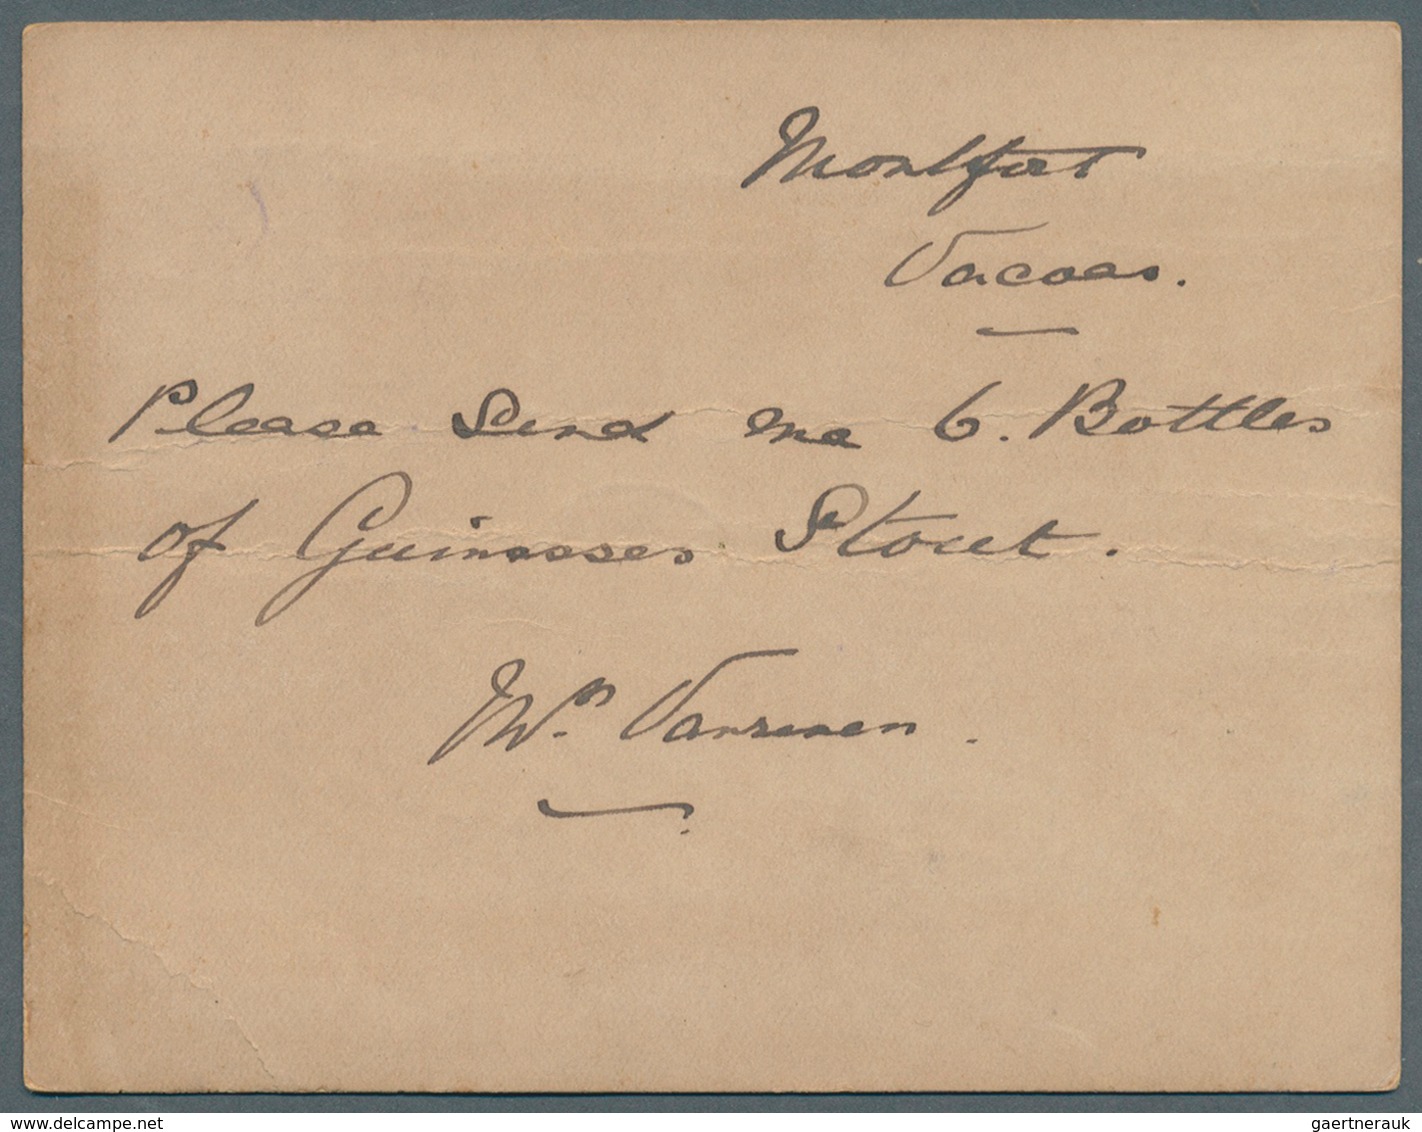 Montfort
Vacoas.
Please Send me 6. Bottles
of Guinesses Stout.
Wm.
www.delcampe.net
gaertnerauk